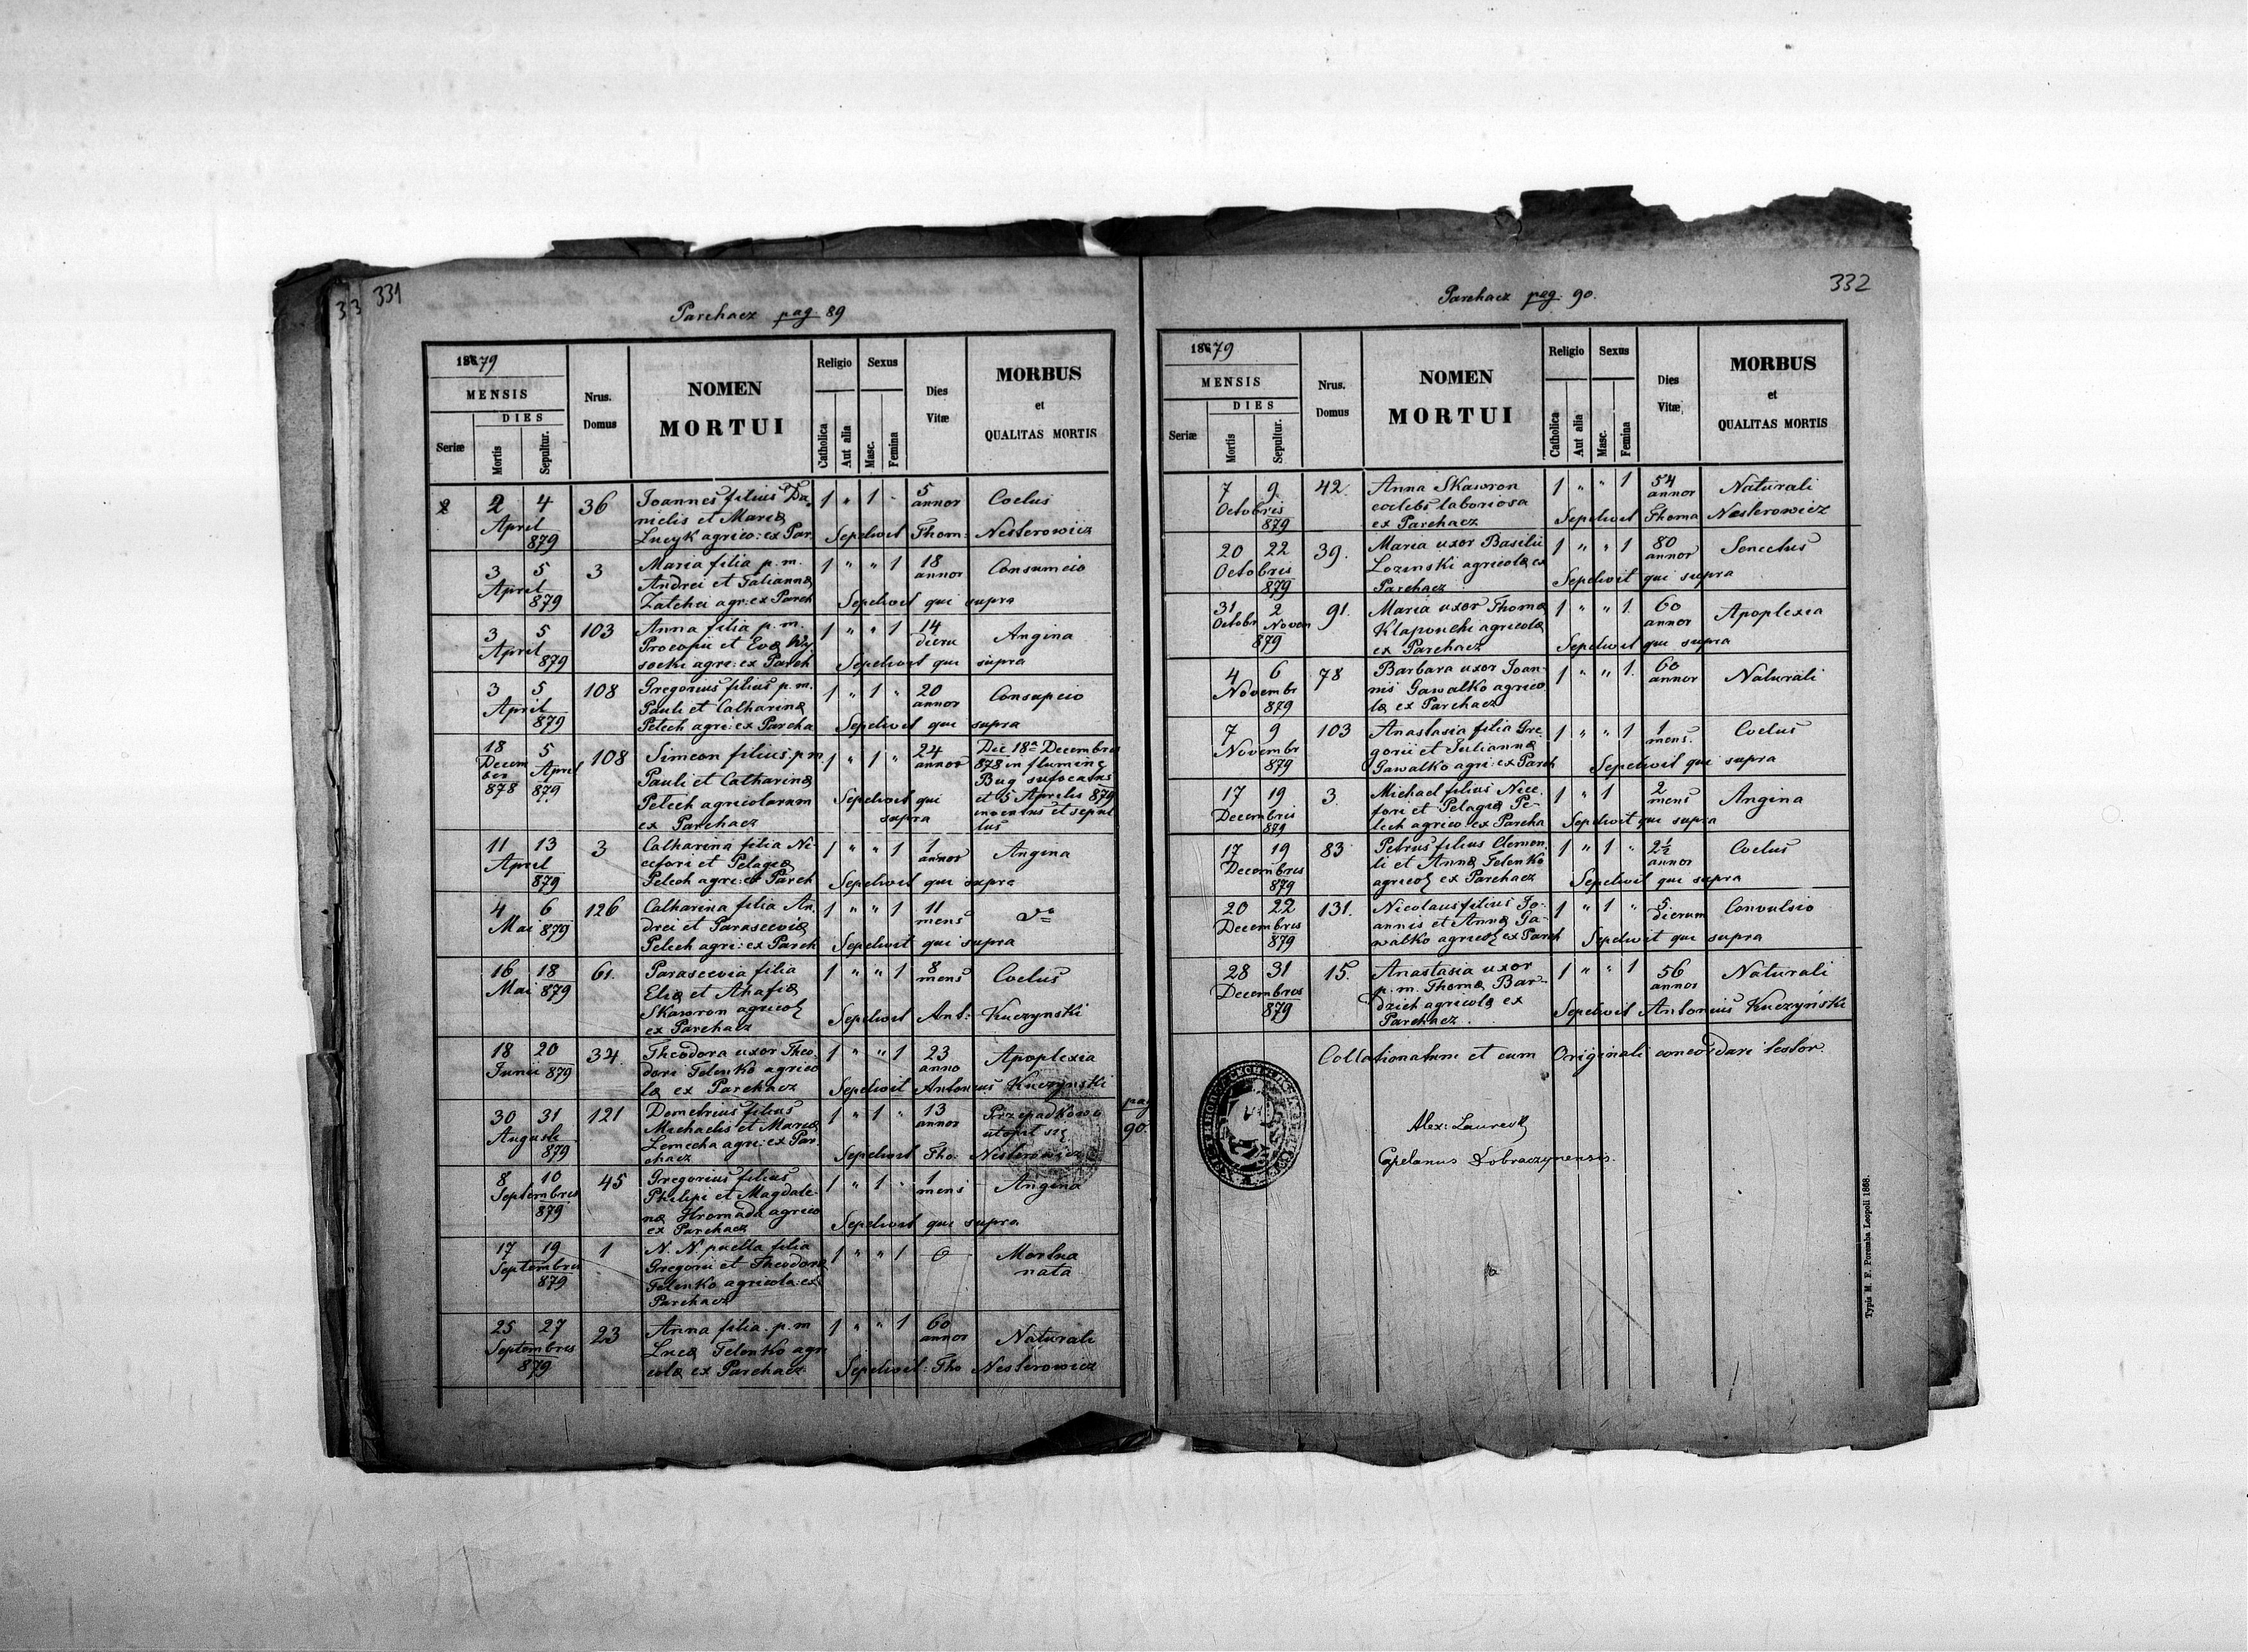 33
331
Parchacz pag. 89
1879
MENSIS
DIES
Seriæ
Mortis
Sepultur.
Nrus.
Domus
NOMEN
MORTUI
Religio
Catholica
Aut alia
Sexus
Masc.
Femina
Dies
Vitæ
MORBUS
et
QUALITAS MORTIS
2 4 36 Joannes filius Da- 1 " 1 - 5 annor Coclus
April nielis et Mariæ
879 Lucyk agrico: ex Par. Sepelivit Thom: Nesterowicz
3 5 3 Maria filia p. m. 1 " " 1 18 annor Consumcio
April Andrei et Tatiannæ
879 Zatchei agr: ex Parch Sepelivit qui supra
3 5 103 Anna filia p. m. 1 " " 1 14 dieru Angina
April Procopii et Evæ Wy
879 socki agri: ex Parch Sepelivit qui supra
3 5 108 Gregorius filius p. m. 1 " 1 " 20 annor Consupcio
April Pauli et Catharinæ
879 Petech agri: ex Parcha Sepelivit qui supra
18 5 108 Simeon filius p. m 1 " 1 " 24 annor Die 18a Decembris
Decem April 878 in flumine
ber Pauli et Catharinæ Bug sufocatus
878 879 Petech agricolarum Sepelivit qui et 5 Aprilis 879
ex Parchacz supra inventus et sepul
tus
11 13 3 Catharina filia Ni- 1 " " 1 1 annor Angina
April cefori et Pelagiæ
879 Petech agri: ex Parch Sepelivit qui supra
4 6 126 Catharina filia An- 1 " " 1 11 mens do
Mai 879 drei et Parasceviæ
Petech agri: ex Parch Sepelivit qui supra
16 18 61. Parascevia filia 1 " " 1 8 mens Coclus
Mai 879 Eliæ et Ahafiæ
Skawron agricol
ex Parchacz Sepelivit Ant: Kuczynski
18 20 34 Theodora uxor Theo- 1 " " 1 23 anno Apoplexia
Junii 879 dori Telenko agrico
læ ex Parchacz Sepelivit Antonius Kuczynski
30 31 121 Demetrius filius 1 " 1 " 13 annor Przepadkowo
Augusti Michaelis et Mariæ utopił się
879 Lemecha agri: ex Par-
chacz Sepelivit Tho: Nesterowicz
pag
90.
8 10 45 Gregorius filius 1 " 1 " 1 mens Angina
Septembris Philipi et Magdale-
879 næ Hromada agrico
ex Parchacz Sepelivit qui supra
17 19 1 N. N. puella filia 1 " " 1 0 Mortua
Septembris Gregorii et Theodoræ nata
879 Telenko agricola: ex
Parchacz
25 27 23 Anna filia p. m 1 " " 1 60 annor Naturali
Septembris Lucæ Telenko agri
879 colæ ex Parchacz Sepelivit: Tho Nesterowicz
332
Parchacz pag. 90.
1879
MENSIS
DIES
Seriæ
Mortis
Sepultur.
Nrus.
Domus
NOMEN
MORTUI
Religio
Catholica
Aut alia
Sexus
Masc.
Femina
Dies
Vitæ
MORBUS
et
QUALITAS MORTIS
7 9 42. Anna Skawron 1 " " 1 54 annor Naturali
Octobris coelebs laboriosa
879 ex Parchacz Sepelivit Thoma Nesterowicz
20 22 39. Maria uxor Basilii 1 " " 1 80 annor Senectus
Octobris Lozinski agricolæ ex
879 Parchacz Sepelivit qui supra
31 2 91. Maria uxor Thomæ 1 " " 1. 60 annor Apoplexia
Octobr Novem Klapouchi agricolæ
879 ex Parchacz Sepelivit qui supra
4 6 78 Barbara uxor Joan- 1 " " 1. 60 annor Naturali
Novembr nis Gawalko agrico
879 læ ex Parchacz
7 9 103 Anastasia filia Gre 1 " " 1 1 mens. Coclus
Novembr gorii et Juliannæ
879 Gawalko agri: ex Parch Sepelivit qui supra
17 19 3 Michael filius Nice- 1 " 1 2 mens Angina
Decembris fori et Pelagiæ Pe-
879 tech agrico ex Parcha Sepelivit qui supra
17 19 83 Petrus filius Clemen- 1 " 1 " 2½ annor Coclus
Decembris ti et Annæ Telenko
879 agricol ex Parchacz Sepelivit qui supra
20 22 131. Nicolaus filius Jo- 1 " 1 " 5. dierum Convulsio
Decembris annis et Annæ Ga-
879 walko agricol ex Parch Sepelivit qui supra
28 31 15. Anastasia uxor 1 " " 1 56 annor Naturali
Decembris p. m. Thomæ Bar-
879 dzich agricolæ ex
Parchacz. Sepelivit Antonius Kuczyński
Collationatum et cum Originali concordare testor.
Capelanus Dobraczynensis.
Typis M. F. Poremba Leopoli 1868.